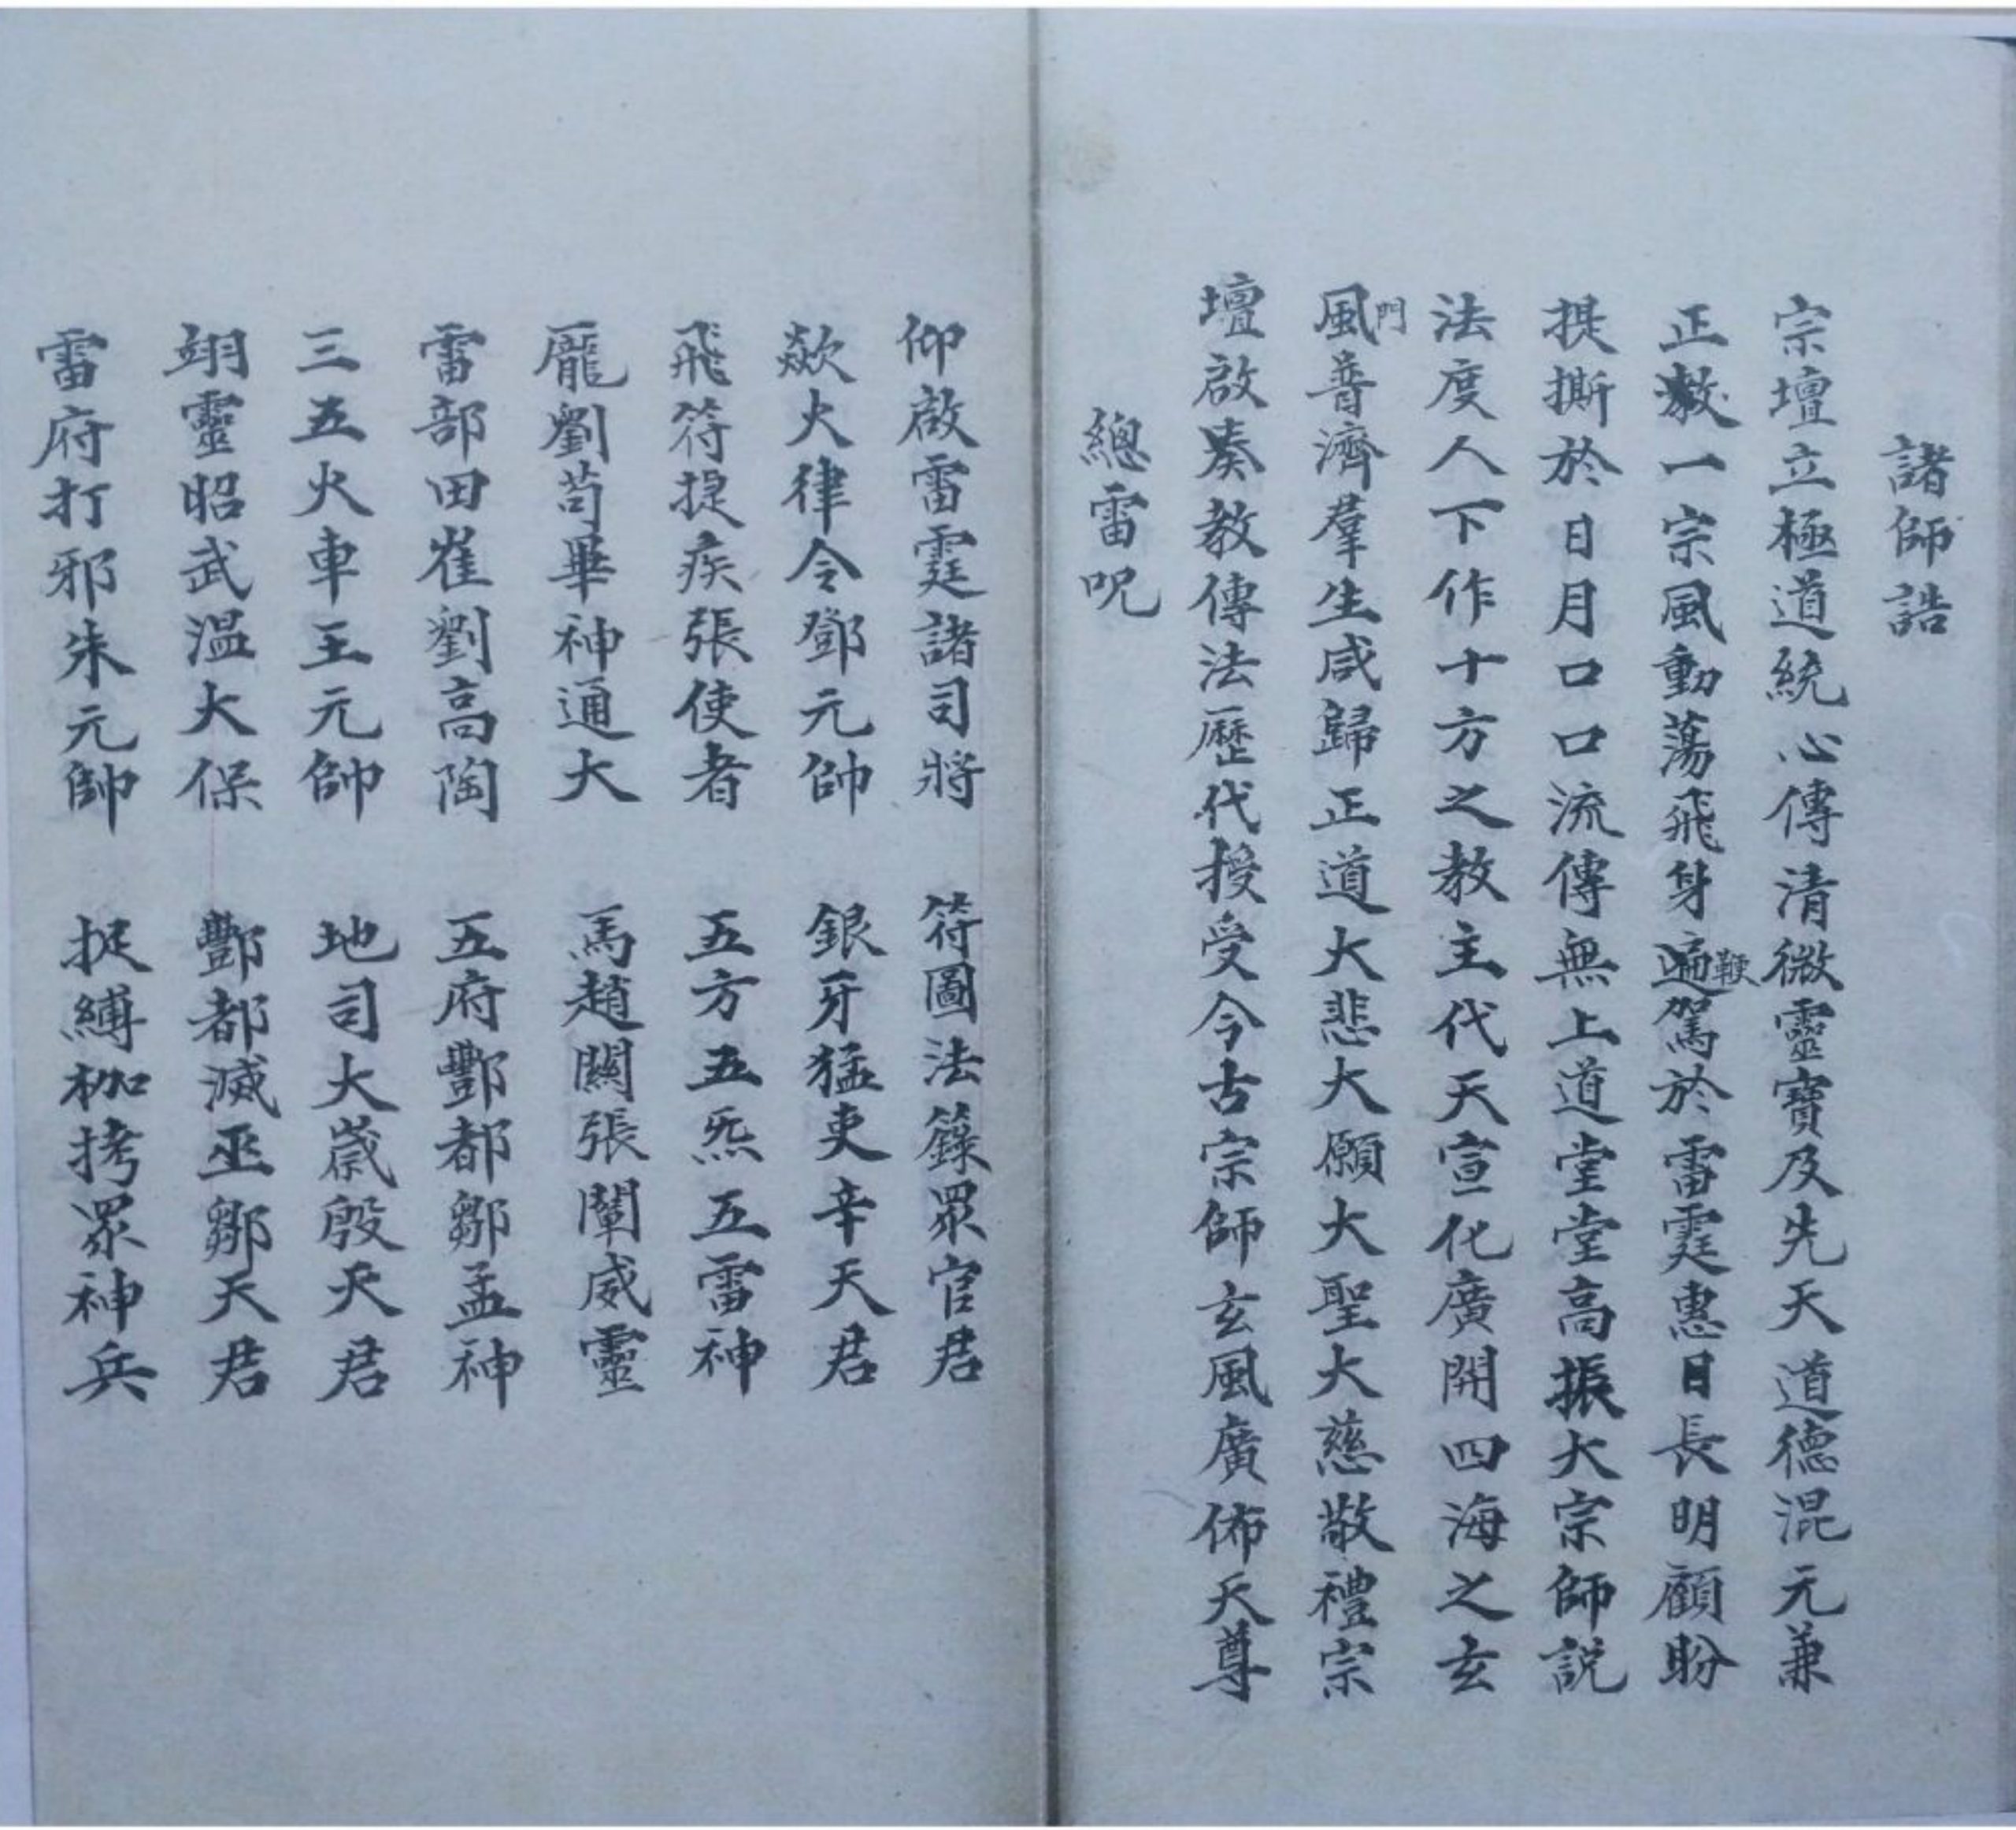 諸師誥
宗壇立極道統心傳清微靈寶及先天道德混元兼
正教一宗風動蕩飛身遍鞭駕於雷霆惠目長明顧盼
提撕於日月口口流傳無上道堂堂高振大宗師説
法度人下作十方之教主代天宣化廣開四海之玄
風門普濟羣生咸歸正道大悲大願大聖大慈敬禮宗
壇啟奏教傳法歷代授受今古宗師玄風廣佈天尊
總雷呪
仰啟雷霆諸司將 符圖法籙眾官君
歘火律令鄧元帥 銀牙猛吏辛天君
飛符提疾張使者 五方五炁五雷神
龐劉苟畢神通大 馬趙關張闡威靈
雷部田崔劉高陶 五府酆都鄒孟神
三五火車王元帥 地司大歲殷天君
翊靈昭武溫太保 酆都滅巫鄒天君
雷府打邪朱元帥 捉縛枷拷眾神兵